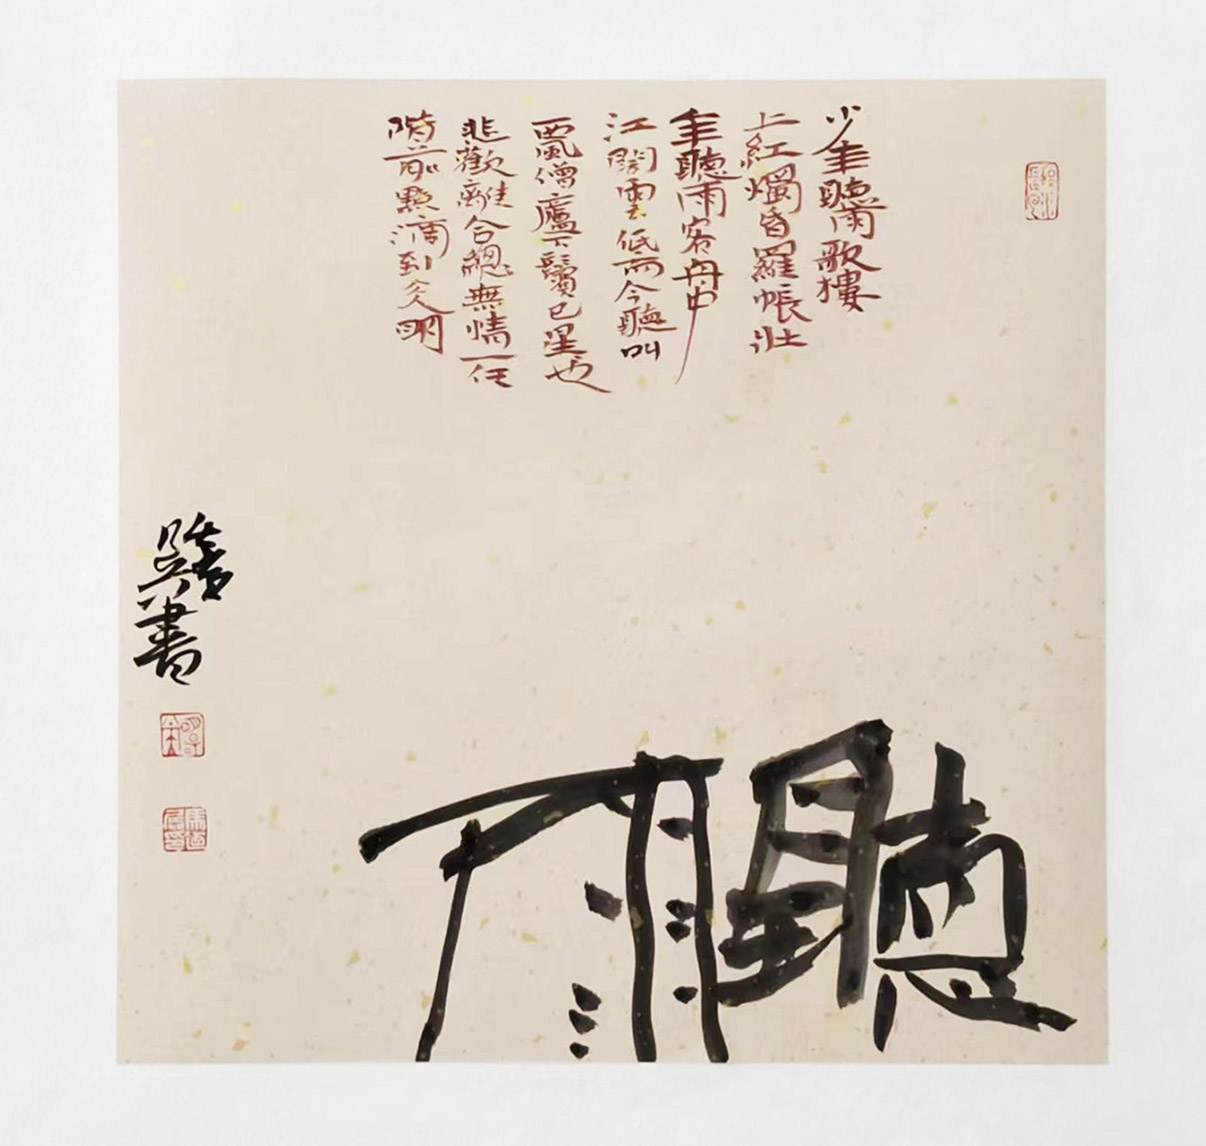 少年聽雨歌樓
上紅燭昏羅帳壯
年聽雨客舟中
江闊雲低而今聽叫
西風僧廬下鬢已星也
悲歡離合總無情一任
階前點滴到天明
聽雨
書